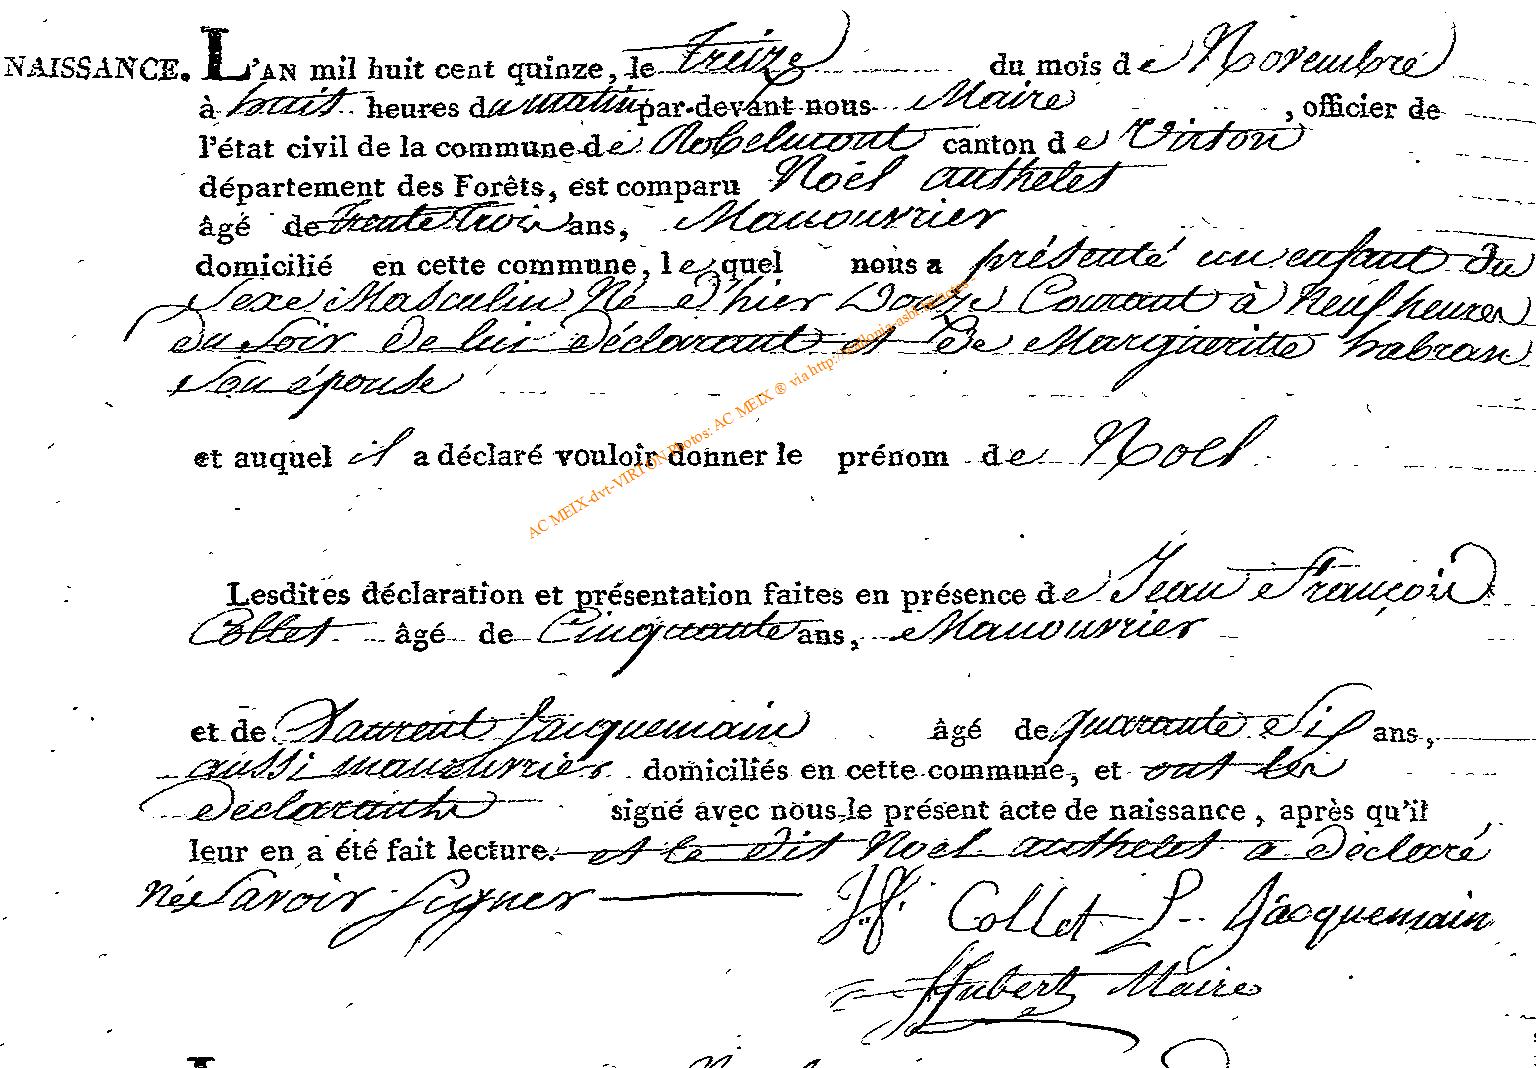 NAISSANCE. L'AN mil huit cent quinze, le treize du mois de Novembre
à huit heures du matin par-devant nous Maire, officier de
l'état civil de la commune de Robelmont canton de Virton
département des Forêts, est comparu Noël authelet
âgé de trente trois ans, Manouvrier
domicilié en cette commune, lequel nous a présenté un enfant du
Sexe Masculin Né d'hier Douze Courant à Neuf heures
du soir de lui déclarant et de Margueritte habran
son épouse
et auquel il a déclaré vouloir donner le prénom de Noël
Lesdites déclaration et présentation faites en présence de Jean François
Collet âgé de Cinquante ans, Manouvrier
et de Laurent Jacquemain âgé de quarante Six ans,
aussi manouvrier domiciliés en cette commune, et ont les
déclarants signé avec nous le présent acte de naissance, après qu'il
leur en a été fait lecture. et le dit Noël authelet a déclaré
ne Savoir Signer
J.f. Collet L. Jacquemain
Hubert Maire
AC MEIX-dvt-VIRTON Photos: AC MEIX ® via http://wallonia-asbl.